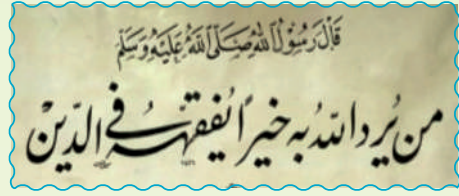 قَالَ رَسُوْلُ اللهِ صَلَّى اللهُ عَلَيْهِ وَسَلَّمَ
من يُرِدِ اللهُ بِهٖ خيراً يُفقهْهُ فِي الدِّيْنِ